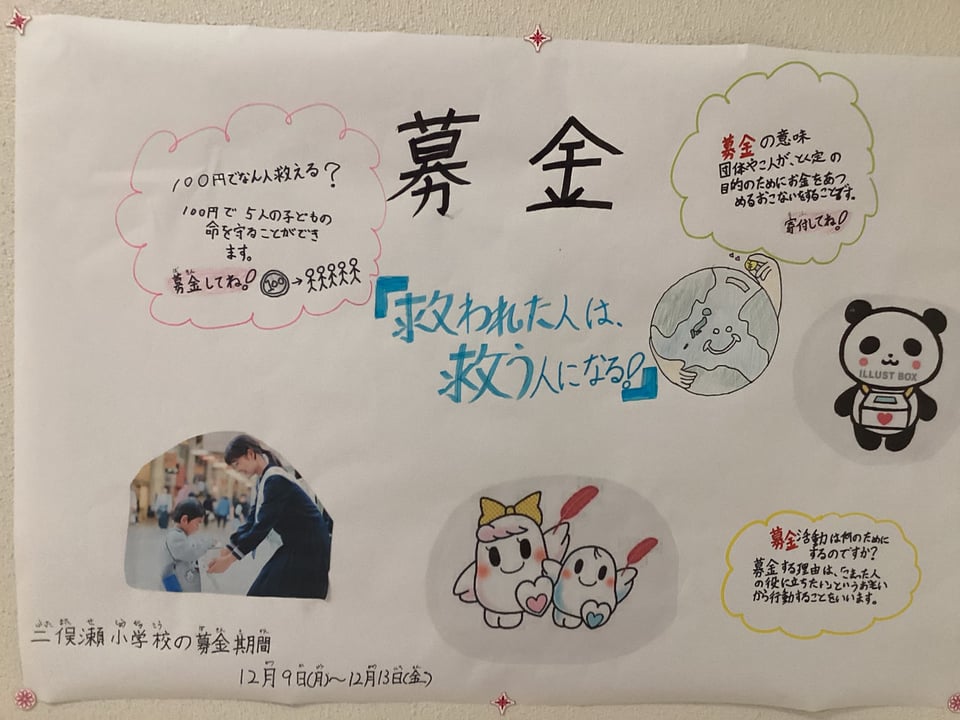 募金
100円でなん人救える?
100円で5人の子どもの
命を守ることができ
ます。
募金してね!
100
募金の意味
団体やこ人が、とく定の
目的のためにお金をあつ
めるおこないをすることです。
寄付してね!
『救われた人は、
救う人になる!』
ILLUST BOX
募金活動は何のために
するのですか?
募金する理由は、「こまった人
の役に立ちたい」というお思い
から行動することをいいます。
二俣瀬小学校の募金期間
12月9日(月)~12月13日(金)